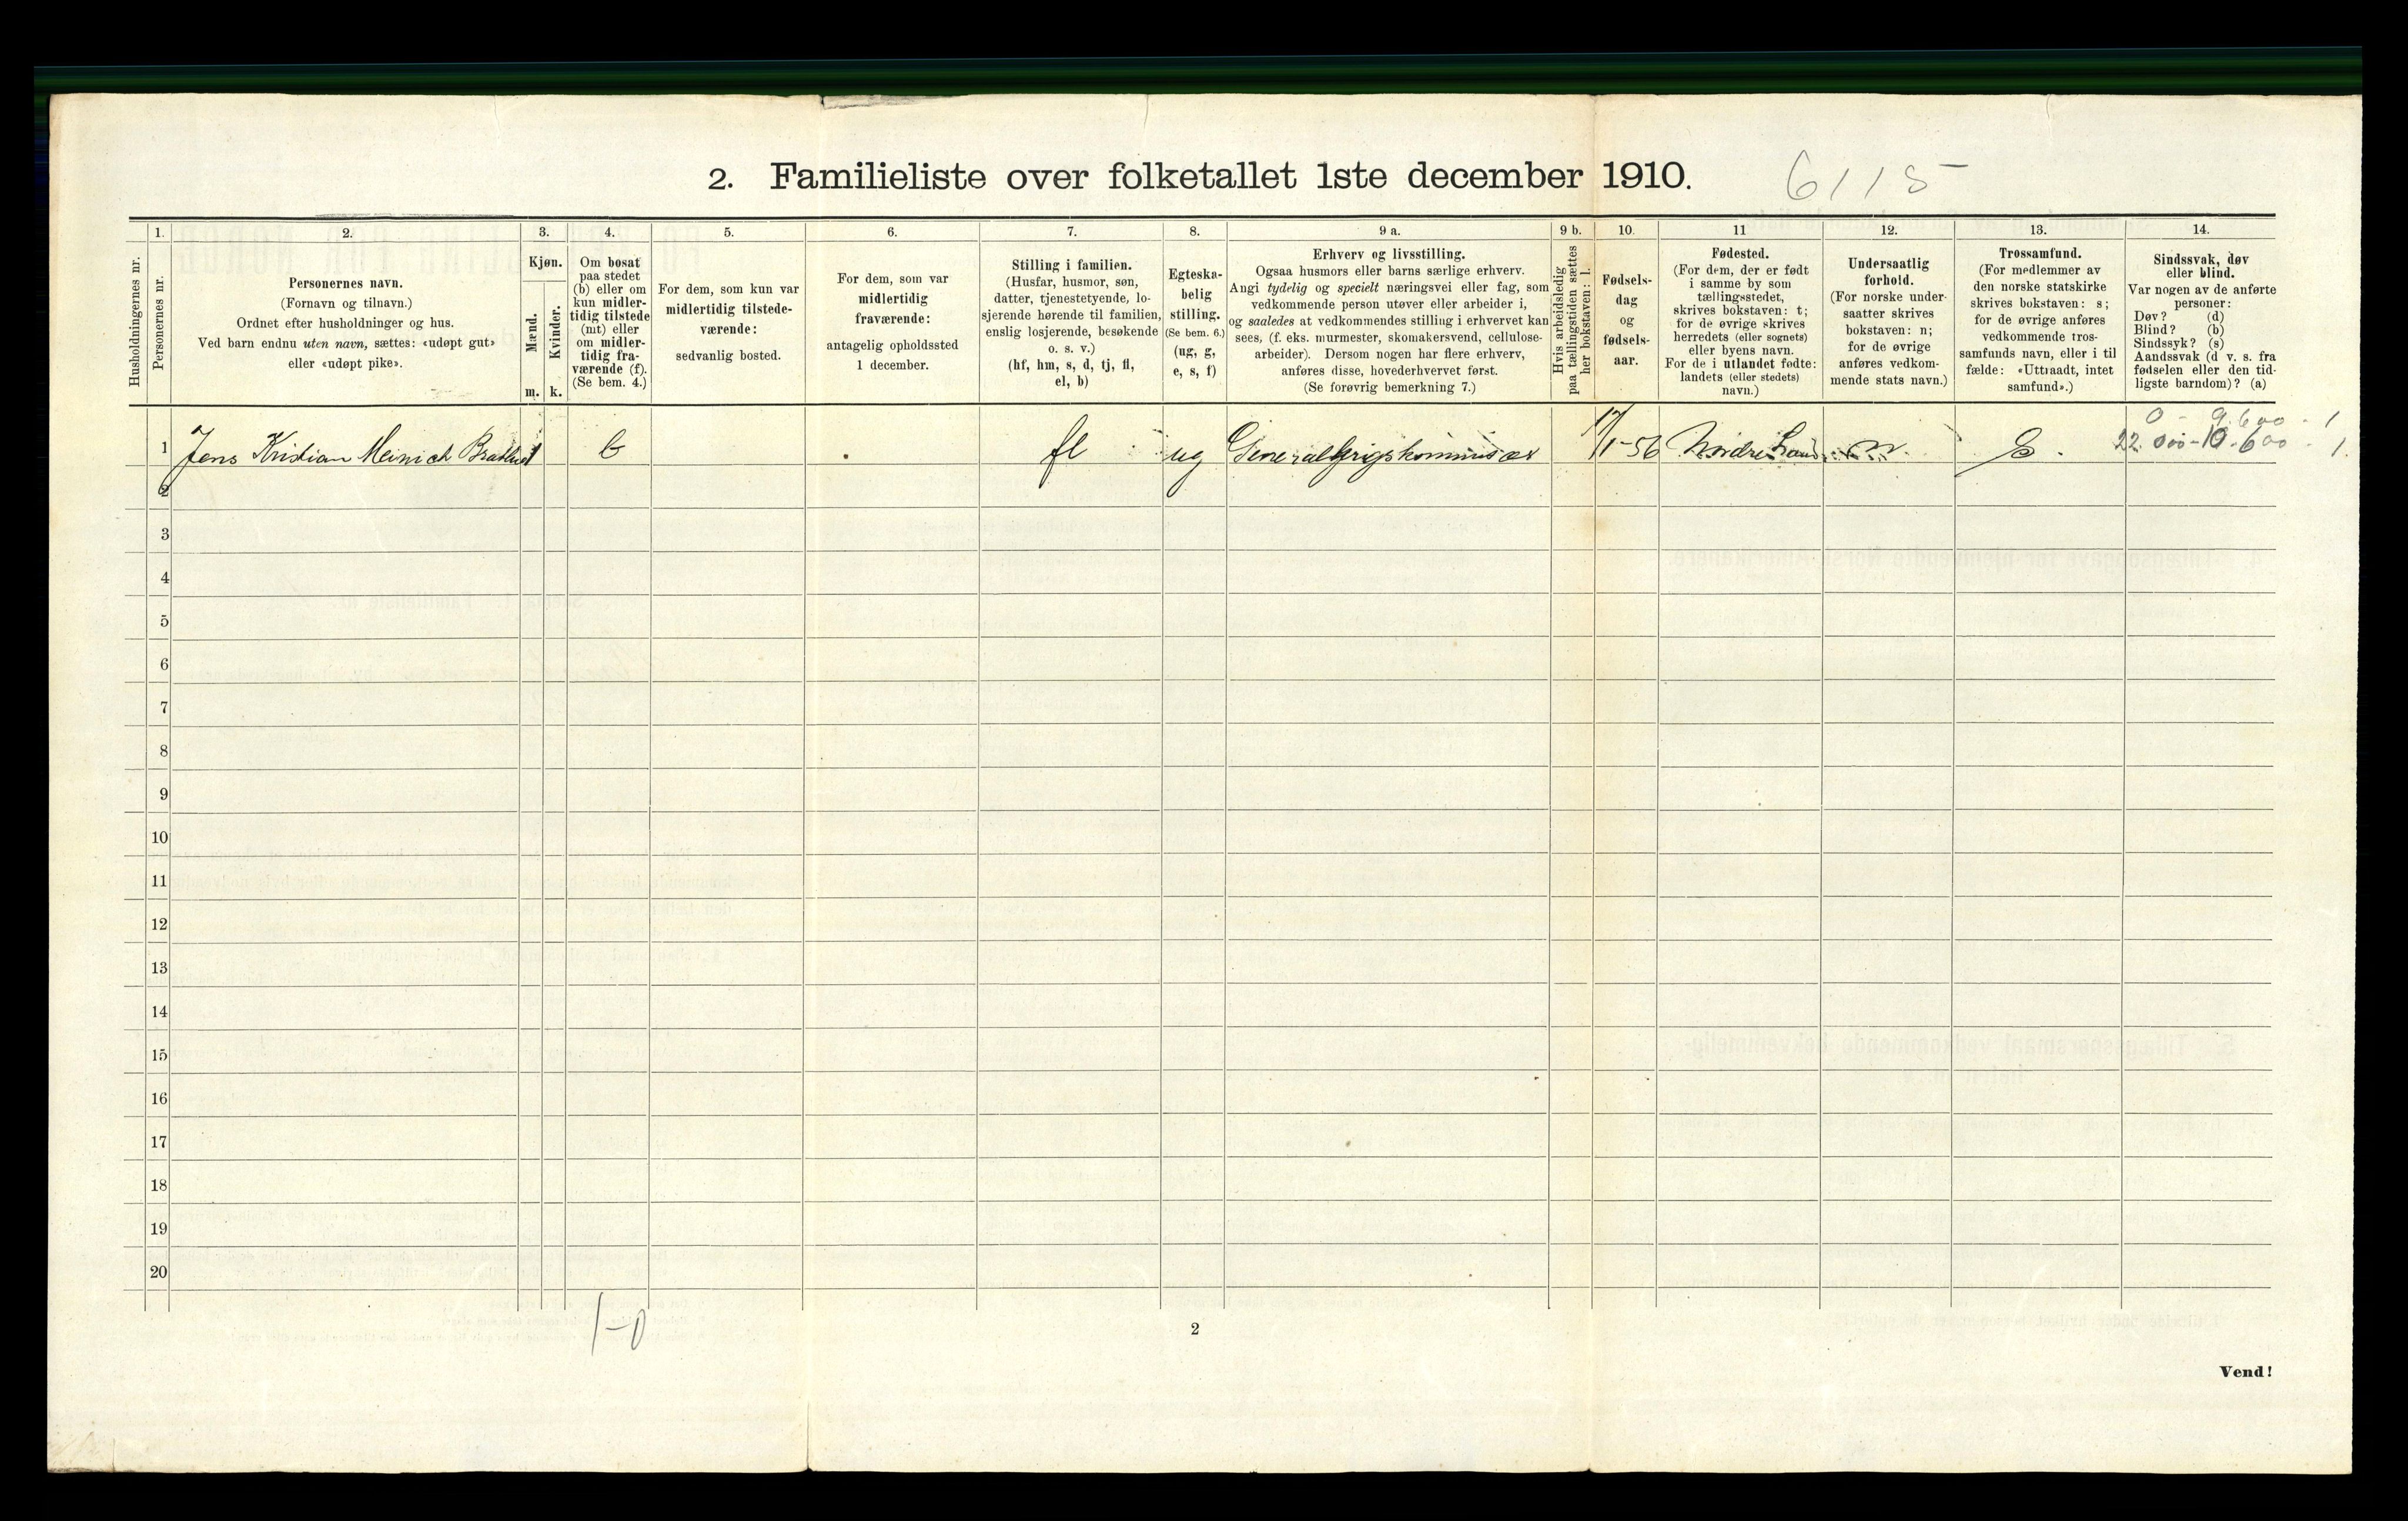 2. Familieliste over folketallet 1ste december 1910.
6115
Husholdningernes nr.
1.
Personernes nr.
2.
Personernes navn.
(Fornavn og tilnavn.)
Ordnet efter husholdninger og hus.
Ved barn endnu uten navn, sættes: «udøpt gut»
eller «udøpt pike».
3.
Kjøn.
Mænd.
m.
Kvinder.
k.
4.
Om bosat
paa stedet
(b) eller om
kun midler-
tidig tilstede
(mt) eller
om midler-
tidig fra-
værende (f).
(Se bem. 4.)
5.
For dem, som kun var
midlertidig tilstede-
værende:
sedvanlig bosted.
6.
For dem, som var
midlertidig
fraværende:
antagelig opholdssted
1 december.
7.
Stilling i familien.
(Husfar, husmor, søn,
datter, tjenestetyende, lo-
sjerende hørende til familien,
enslig losjerende, besøkende
o. s. v.)
(hf, hm, s, d, tj, fl,
el, b)
8.
Egteska-
belig
stilling.
(Se bem. 6.)
(ug, g,
e, s, f)
9 a.
Erhverv og livsstilling.
Ogsaa husmors eller barns særlige erhverv.
Angi tydelig og specielt næringsvei eller fag, som
vedkommende person utøver eller arbeider i,
og saaledes at vedkommendes stilling i erhvervet kan
sees, (f. eks. murmester, skomakersvend, cellulose-
arbeider). Dersom nogen har flere erhverv,
anføres disse, hovederhvervet først.
(Se forøvrig bemerkning 7.)
9 b.
Hvis arbeidsledig
paa tællingstiden sættes
her bokstaven: l.
10.
Fødsels-
dag
og
fødsels-
aar.
11
Fødested.
(For dem, der er født
i samme by som
tællingsstedet,
skrives bokstaven: t;
for de øvrige skrives
herredets (eller sognets)
eller byens navn.
For de i utlandet fødte:
landets (eller stedets)
navn.)
12.
Undersaatlig
forhold.
(For norske under-
saatter skrives
bokstaven: n;
for de øvrige
anføres vedkom-
mende stats navn.)
13.
Trossamfund.
(For medlemmer av
den norske statskirke
skrives bokstaven: s;
for de øvrige anføres
vedkommende tros-
samfunds navn, eller i til
fælde: «Uttraadt, intet
samfund».)
14.
Sindssvak, døv
eller blind.
Var nogen av de anførte
personer:
Døv? (d)
Blind? (b)
Sindssyk? (s)
Aandssvak (d v. s. fra
fødselen eller den tid-
ligste barndom)? (a)
0 - 9.600 - 1
1 Jens Kristian Meinich Bratlie 1 b fl ug Generalkrigskommisær 17/1-56 Nordre Land n. S. 22.000-10.600 - 1.
2
3
4
5
6
7
8
9
10
11
12
13
14
15
16
17
18
19
20
1-0
2
Vend!